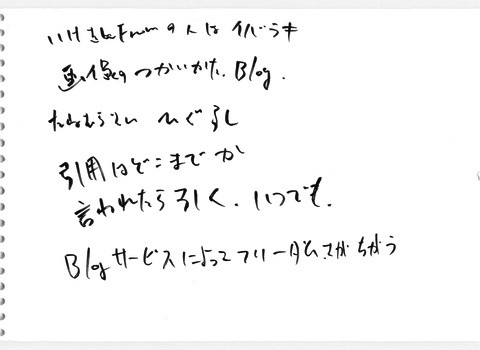 の人は イバラキ
画像の つかいかた. Blog.
ひぐらし
引用はどこまでか
言われたら引く. いつでも.
Blogサービスによってフリーダムさがちがう